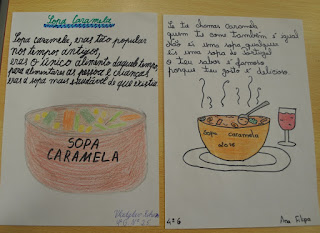 Sopa Caramela
Sopa caramela, eras tão popular
nos tempos antigos,
eras o único alimento daquele tempo,
para alimentares as pessoas e crianças
eras a sopa mais saudável de que existia.
SOPA
CARAMELA
Se te chamas caramela
quem te come também é igual
não és uma sopa qualquer
és uma sopa de Portugal
O teu sabor é famoso
porque teu gosto é delicioso.
Sopa caramela
2018
4º G
Ana Filipa